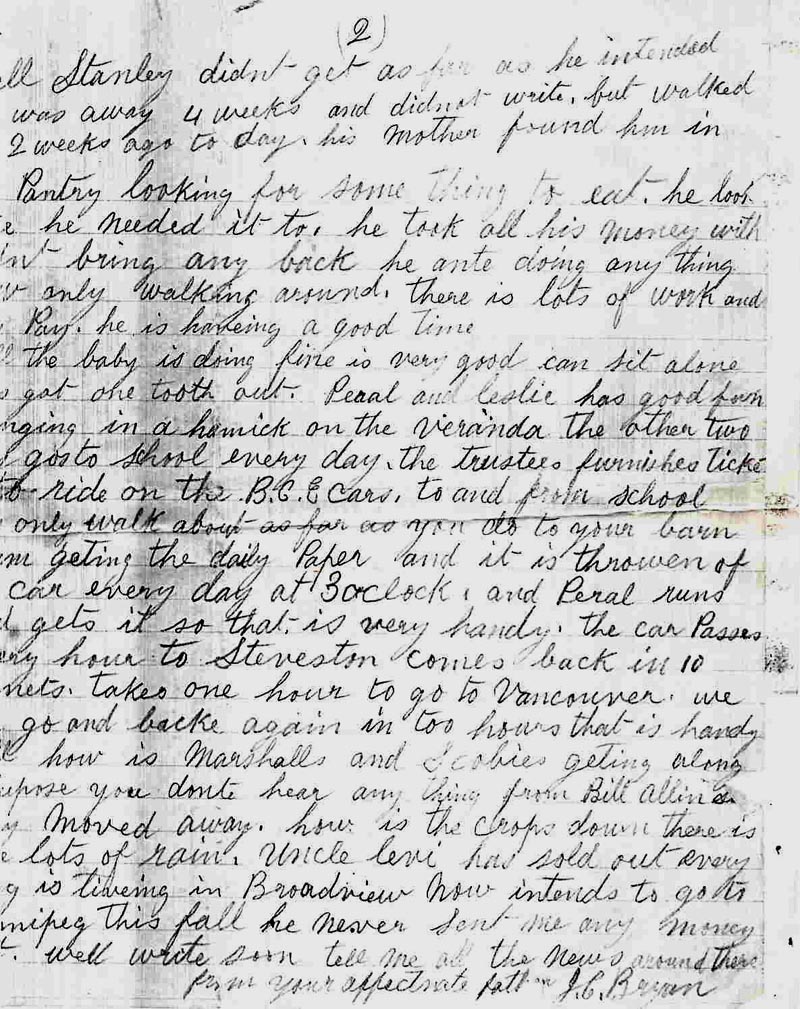 (2)
ell Stanley didnt get as far as he intended
was away 4 weeks and didnot write. but walked
2 weeks ago to day. his Mother found him in
Pantry looking for some thing to eat. he look
e he needed it to. he took all his money with
n't bring any back he ante doing any thing
w only walking around. there is lots of work and
Pay. he is haveing a good time
ll the baby is doing fine is very good can sit alone
s got one tooth out. Pearl and leslie has good fun
nging in a hamick on the veranda the other two
gosto school every day. the trustees furnishes Ticke
to ride on the B.C.E cars. to and from school
only walk about as far as you do to your barn
am geting the daily Paper and it is throwen of
car every day at 3oclock. and Peral runs
d gets it so that is very handy. the car Passes
ery hour to Steveston comes back in 10
nets. takes one hour to go to Vancouver. we
go and backe again in too hours that is handy
ll how is Marshalls and Scobies geting along
upose you donte hear any thing from Bill Allin
y Moved away. how is the crops down there is
e lots of rain. Uncle levi has sold out every
g is liveing in Broadview Now intends to go to
nnipeg this fall he never sent me any money
t. well write soon tell me all the News around there
from your affectnate father J.C. Bryan